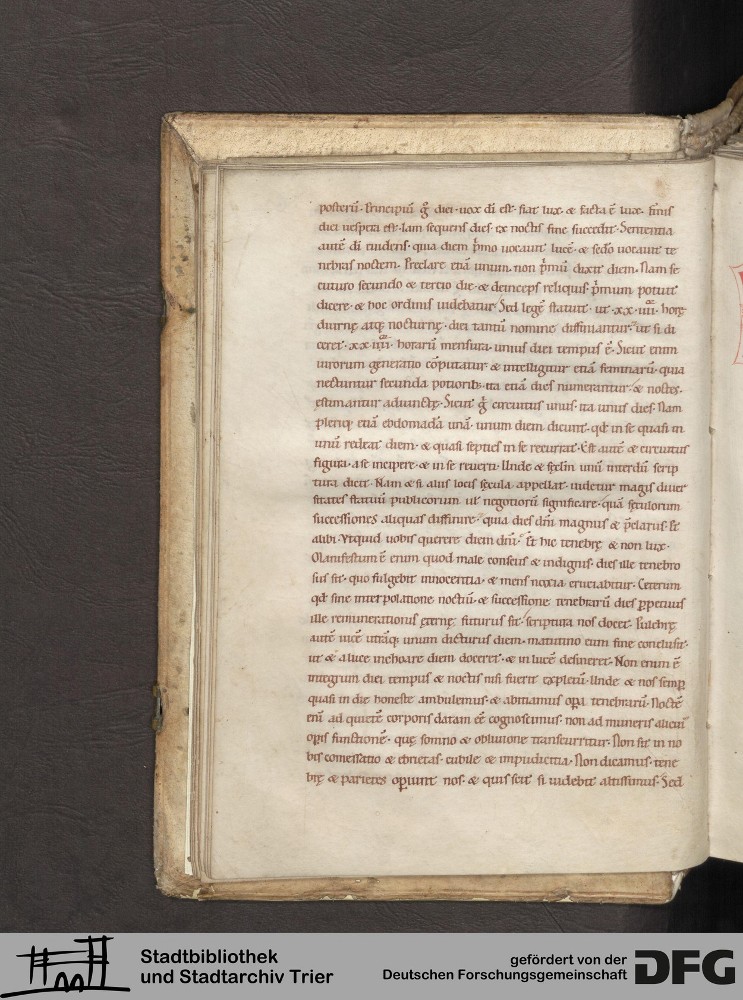 posterū. Principiū g̊ diei uox dī est. fiat lux. & facta ē lux. finis
diei uespera est. Iam sequens dies ex noctis fine succedit. Sententia
autē dī euidens. quia diem p̄mo uocauit lucē. & sc̄do uocauit te
nebras noctem. Preclare etiā unum. non p̄mū dixit diem. Nam se
cuturo secundo & tercio die. & deinceps reliquis p̄mum potuit
dicere. & hoc ordinis uidebatur. Sed legē statuit. ut .xx.iiii. horę
diurnę atq; nocturnę. diei tantū nomine diffiniantur. ut si di
ceret. xx.iiii. horarū mensura. unius diei tempus ē. Sicut enim
uirorum generatio cōputatur & intelligitur etiā feminarū. quia
nectuntur secunda potiorib;. ita etiā dies numerantur. & noctes.
estimantur adiunctę. Sicut g̊ circuitus unus. ita unus dies. Nam
pleriq; etiā ebdomadā unā. unum diem dicunt. qd̄ in se quasi in
unū redeat diem. & quasi septies in se recurrat. Est autē & circuitus
figura. a se incipere. & in se reuerti. Unde & sęclm̄ unū interdū scrip
tura dicit. Nam & si aliis locis sęcula appellat. uidetur magis diuer
sitates statuū publicorum ul̄ negotiorū significare. quā sęculorum
successiones aliquas diffinire. quia dies dn̄i magnus & p̄clarus. Et
alibi. Vtquid uobis querere diem dn̄i. Et hic tenebrę & non lux.
Manifestum ē enim quod male consciis & indignis. dies ille tenebro
sus sit. quo fulgebit innocentia. & mens noxia cruciabitur. Ceterum
qd̄ sine interpolatione noctiū. & successione tenebrarū dies p̱petuus
ille remunerationis ęternę futurus sit. scriptura nos docet. Pulchrę
autē uice utraq; unum dicturus diem. matutino eum fine conclusit.
ut & a luce inchoare diem doceret. & in lucē desineret. Non enim ē
integrum diei tempus & noctis nisi fuerit expletū. Unde & nos semp̱
quasi in die honeste ambulemus. & abiciamus op̱a tenebrarū. Noctē
enī ad quietē corporis datam eē cognoscimus. non ad muneris alicui᾽
op̱is functionē. quę somno & obliuione transcurritur. Non sit in no
bis comessatio & ebrietas. cubile & impudicitia. Non dicamus. tene
brę & parietes op̱iunt nos. & quis scit si uidebit altissimus. Sed
Stadtbibliothek
und Stadtarchiv Trier
gefördert von der
Deutschen Forschungsgemeinschaft
DFG